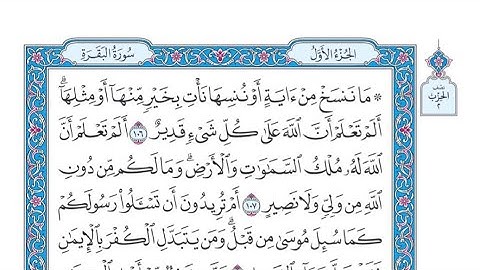 سُورَةُ البَقَرَةِ
الجُزْءُ الأَوَّلُ
نصف
الحِزْبِ
٢
* مَا نَنسَخْ مِنْ ءَايَةٍ أَوْ نُنسِهَا نَأْتِ بِخَيْرٍ مِّنْهَآ أَوْ مِثْلِهَآۗ
أَلَمْ تَعْلَمْ أَنَّ ٱللَّهَ عَلَىٰ كُلِّ شَىْءٍ قَدِيرٌ ١٠٦ أَلَمْ تَعْلَمْ أَنَّ
ٱللَّهَ لَهُۥ مُلْكُ ٱلسَّمَٰوَٰتِ وَٱلْأَرْضِۗ وَمَا لَكُم مِّن دُونِ
ٱللَّهِ مِن وَلِىٍّ وَلَا نَصِيرٍ ١٠٧ أَمْ تُرِيدُونَ أَن تَسْـَٔلُوا۟ رَسُولَكُمْ
كَمَا سُئِلَ مُوسَىٰ مِن قَبْلُۗ وَمَن يَتَبَدَّلِ ٱلْكُفْرَ بِٱلْإِيمَٰنِ